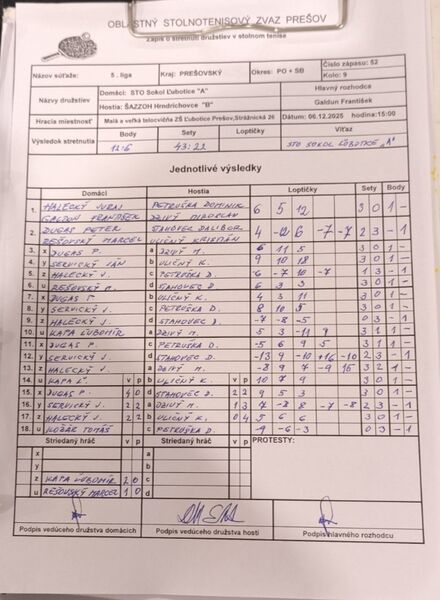 OBLASTNÝ STOLNOTENISOVÝ ZVAZ PREŠOV
Zápis o stretnutí družstiev v stolnom tenise
Názov súťaže: 5. liga Kraj: PREŠOVSKÝ Okres: PO + SB Číslo zápasu: 52
Kolo: 9
Názvy družstiev Domáci: STO Sokol Ľubotice "A" Hlavný rozhodca
Hostia: ŠAZZOH Hrndrichovce "B" Galdun František
Hracia miestnosť Malá a veľká telocvičňa ZŠ Ľubotice Prešov,Strážnická 26 Dátum: 06.12.2025 hodina:15:00
Výsledok stretnutia Body Sety Loptičky Víťaz
12:6 43:22 STO SOKOL ĽUBOTICE "A"
Jednotlivé výsledky
Domáci Hostia Loptičky Sety Body
1. HALECKÝ JURAJ PETRUŠKA DOMINIK 6 5 12 3 0 1 -
GALDUN FRANTIŠEK DZIVÝ MIROSLAV
2. DUGAS PETER STANOVEC DALIBOR 4 -12 6 -7 -7 2 3 - 1
REŠOVSKÝ MARCEL ULIČNÝ KRISTIÁN
3. x DUGAS P. a DZIVÝ M. 6 11 5 3 0 1 -
4. y SERVICKÝ JÁN b ULIČNÝ K. 9 10 18 3 0 1 -
5. z HALECKÝ J. c PETRUŠKA D. -6 -7 10 -7 1 3 - 1
6. u REŠOVSKÝ M. d STANOVEC D. 6 3 3 3 0 1 -
7. x DUGAS P. b ULIČNÝ K. 4 3 11 3 0 1 -
8. y SERVICKÝ J. c PETRUŠKA D. 8 10 5 3 0 1 -
9. z HALECKÝ J. d STANOVEC D. -7 -8 -5 0 3 - 1
10. u KAPA ĽUBOMÍR a DZIVÝ M. 5 3 -11 9 3 1 1 -
11. x DUGAS P. c PETRUŠKA D. -5 6 9 5 3 1 1 -
12. y SERVICKÝ J. d STANOVEC D. -13 9 -10 +16 -10 2 3 - 1
13. z HALECKÝ J. a DZIVÝ M. -8 9 7 -9 15 3 2 1 -
14. u KAPA Ľ. v p b ULIČNÝ K. v p 10 7 9 3 0 1 -
15. x DUGAS P. 4 0 d STANOVEC D. 2 2 9 5 3 3 0 1 -
16. y SERVICKÝ J. 2 2 a DZIVÝ M. 1 3 7 -8 8 -7 -8 2 3 - 1
17. z HALECKÝ J. 2 2 b ULIČNÝ K. 0 4 5 6 6 3 0 1 -
18. u KOŽÁR TOMÁŠ c PETRUŠKA D. -9 -6 -3 0 3 - 1
Striedaný hráč v p Striedaný hráč v p PROTESTY:
x a
y b
z KAPA ĽUBOMÍR 2 0 c
u REŠOVSKÝ MARCEL 1 0 d
Podpis vedúceho družstva domácich Podpis vedúceho družstva hostí Podpis hlavného rozhodcu